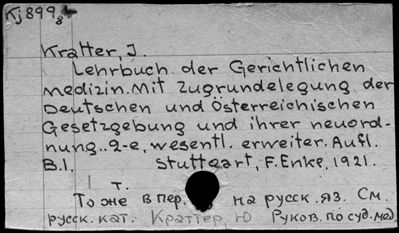 Kj 899
Kratter, J.
Lehrbuch der Gerichtlichen
Medizin. Mit Zugrundelegung der
Deutschen und Österreichischen
Gesetzgebung und ihrer neuord-
nung.. 2-e, wesentl. erweiter. Aufl.
B.1. Stuttgart, F. Enke, 1921.
1 т.
То же в пер. на русск. яз. См.
русск. кат. Краттер, Ю Руков. по суд. мед.